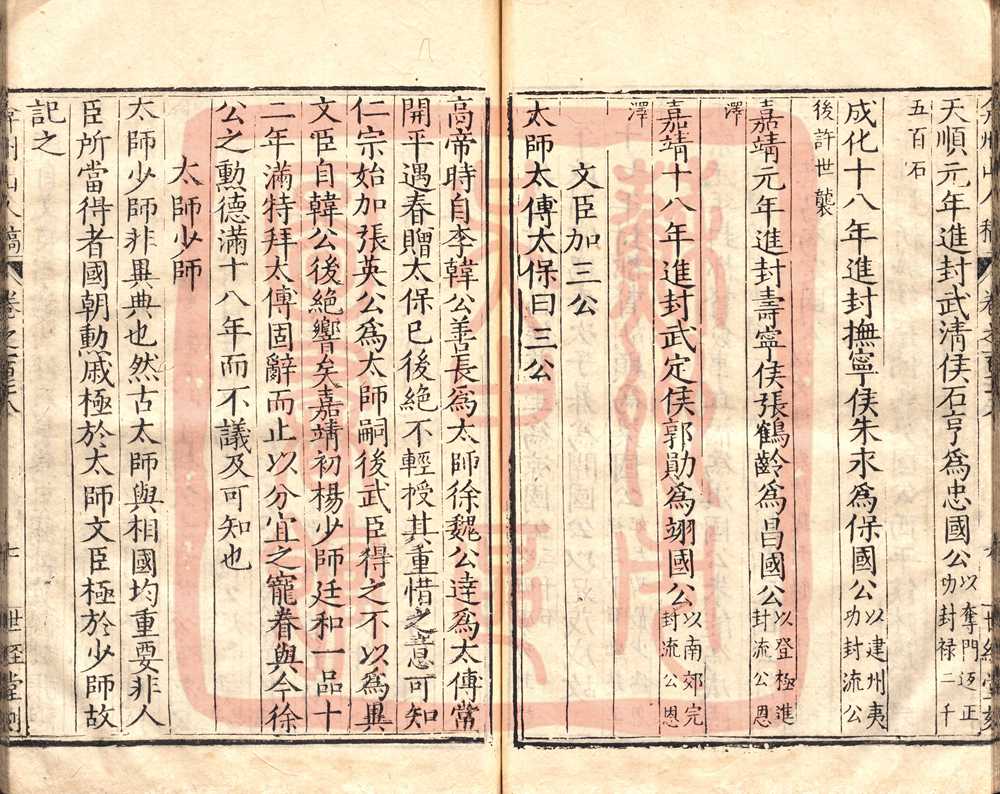 天順元年進封武清侯石亨為忠國公以奪門迎正功封禄二千
五百石
成化十八年進封撫寧侯朱永為保國公以建州夷功封流公
後許世襲
嘉靖元年進封壽寧侯張鶴齡為昌國公以登極進封流公恩
澤
嘉靖十八年進封武定侯郭勛為翊國公以南郊完封流公恩
澤
文臣加三公
太師太傅太保曰三公
高帝時自李韓公善長為太師徐魏公達為太傅常
開平遇春贈太保已後絶不輕授其重惜之意可知
仁宗始加張英公為太師嗣後武臣得之不以為異
文臣自韓公後絶響矣嘉靖初楊少師廷和一品十
二年滿特拜太傅固辭而止以分宜之寵眷與今徐
公之勳德滿十八年而不議及可知也
太師少師
太師少師非異典也然古太師與相國均重要非人
臣所當得者國朝勳戚極於太師文臣極於少師故
記之
弇州山人稿
卷之
世經堂刻